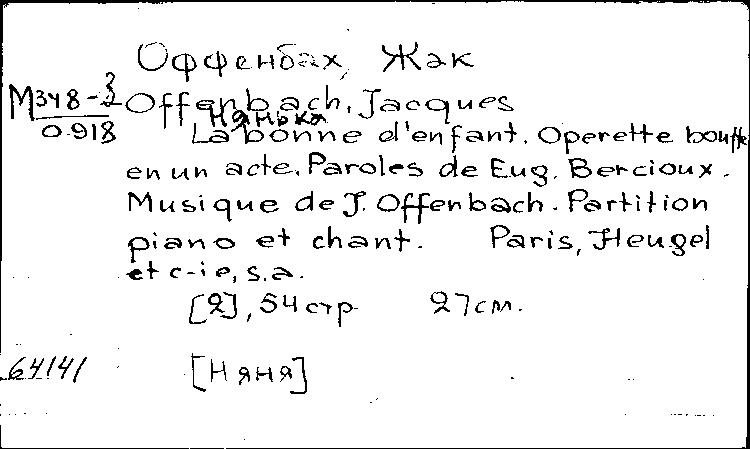 Оффенбах, Жак
М348-3/2
0.918
Offenbach, Jacques
Нянька
La bonne d'enfant. Operette bouffe
en un acte. Paroles de Eug. Bercioux.
Musique de J. Offenbach. Partition
piano et chant. Paris, Heugel
et c-ie, s.a.
[2], 54 стр 27см.
64141
[Няня]